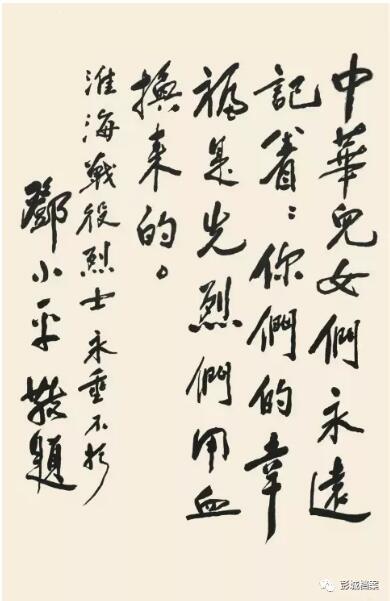 中華兒女們永遠
記着：你們的幸
福是先烈們用血
換来的。
淮海戰役烈士永垂不朽
鄧小平敬題
彭城档案